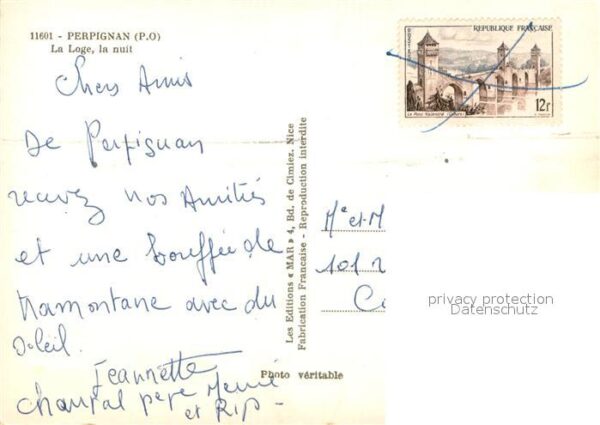 11601 - PERPIGNAN (P.O)
La Loge, la nuit
Chers Amis
De Perpignan
recevez nos Amitiés
et une bouffée de
tramontane avec du
soleil.
Jeannette
Chantal pepe Memé
et Rip -
Les Editions « MAR » 4, Bd. de Cimiez, Nice
Fabrication Française - Reproduction interdite
Photo véritable
REPUBLIQUE FRANÇAISE
12f
Me et M
101
privacy protection
Datenschutz